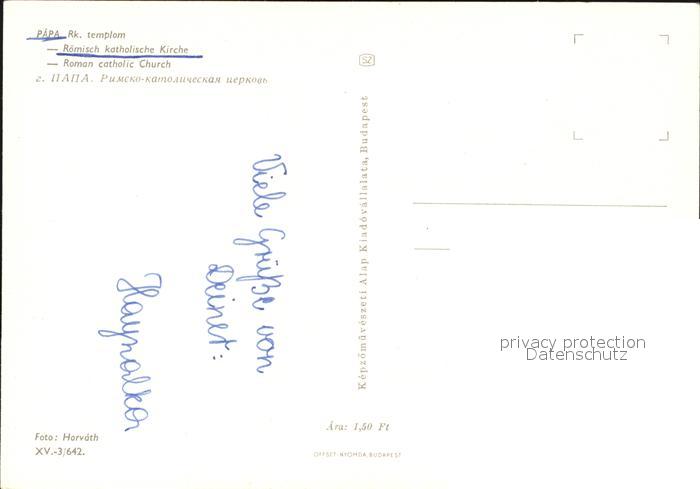 PÁPA Rk. templom
— Römisch katholische Kirche
— Roman catholic Church
г. ПАПА. Римско-католическая церковь
SZ
Képzőművészeti Alap Kiadóvállalata, Budapest
Viele Grüße von
Deiner:
privacy protection
Datenschutz
Ára: 1,50 Ft
Foto: Horváth
XV.-3/642.
OFFSET-NYOMDA, BUDAPEST